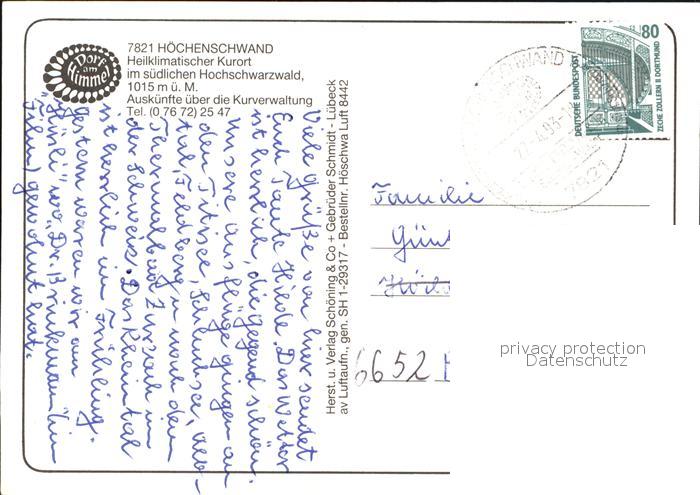 Dorf
am
Himmel
7821 HÖCHENSCHWAND
Heilklimatischer Kurort
im südlichen Hochschwarzwald,
1015 m ü. M.
Auskünfte über die Kurverwaltung
Tel. (0 76 72) 25 47
Viele Grüße von hier sendet
Euch Tante Hilde. Das Wetter
ist herrlich, die Gegend schön.
Unsere Ausflüge gingen an
den Titisee, Schluchsee, 
auf Feldberg u. nach dem
Thermalbad Zurzach in
der Schweiz. Das Rheintal
ist herrlich im Frühling.
Gestern waren wir am
"Hüsli" wo "Dr. Brinkmann" (im
Film) gewohnt hat.
Herst. u. Verlag Schöning & Co + Gebrüder Schmidt - Lübeck
av Luftaufn., gen. SH 1-29317 - Bestellnr. Höschwa Luft 8442
80
DEUTSCHE BUNDESPOST
ZECHE ZOLLERN II DORTMUND
7821
Familie
Gün
6652
privacy protection
Datenschutz